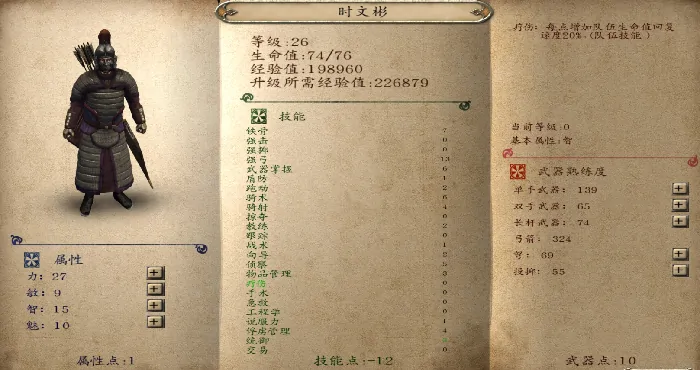 时文彬
等级:26
生命值:74/76
经验值:198960
升级所需经验值:226879
技能
铁骨 7
强击 0
强掷 0
强弓 13
武器掌握 6
盾防 1
跑动 2
骑术 6
骑射 4
掠夺 0
教练 2
跟踪 0
战术 1
向导 2
侦察
物品管理 3
疗伤 0
手术 0
急救 0
工程学 0
说服力 1
俘虏管理 4
统御
交易 0
技能点:-12
属性
力: 27
敏: 9
智: 15
魅: 10
属性点:1
疗伤: 每点增加队伍生命值回复
速度20%.(队伍技能)
当前等级:0
基本属性:智
武器熟练度
单手武器: 139
双手武器: 65
长杆武器: 74
弓箭: 324
弩: 69
投掷: 55
武器点:10